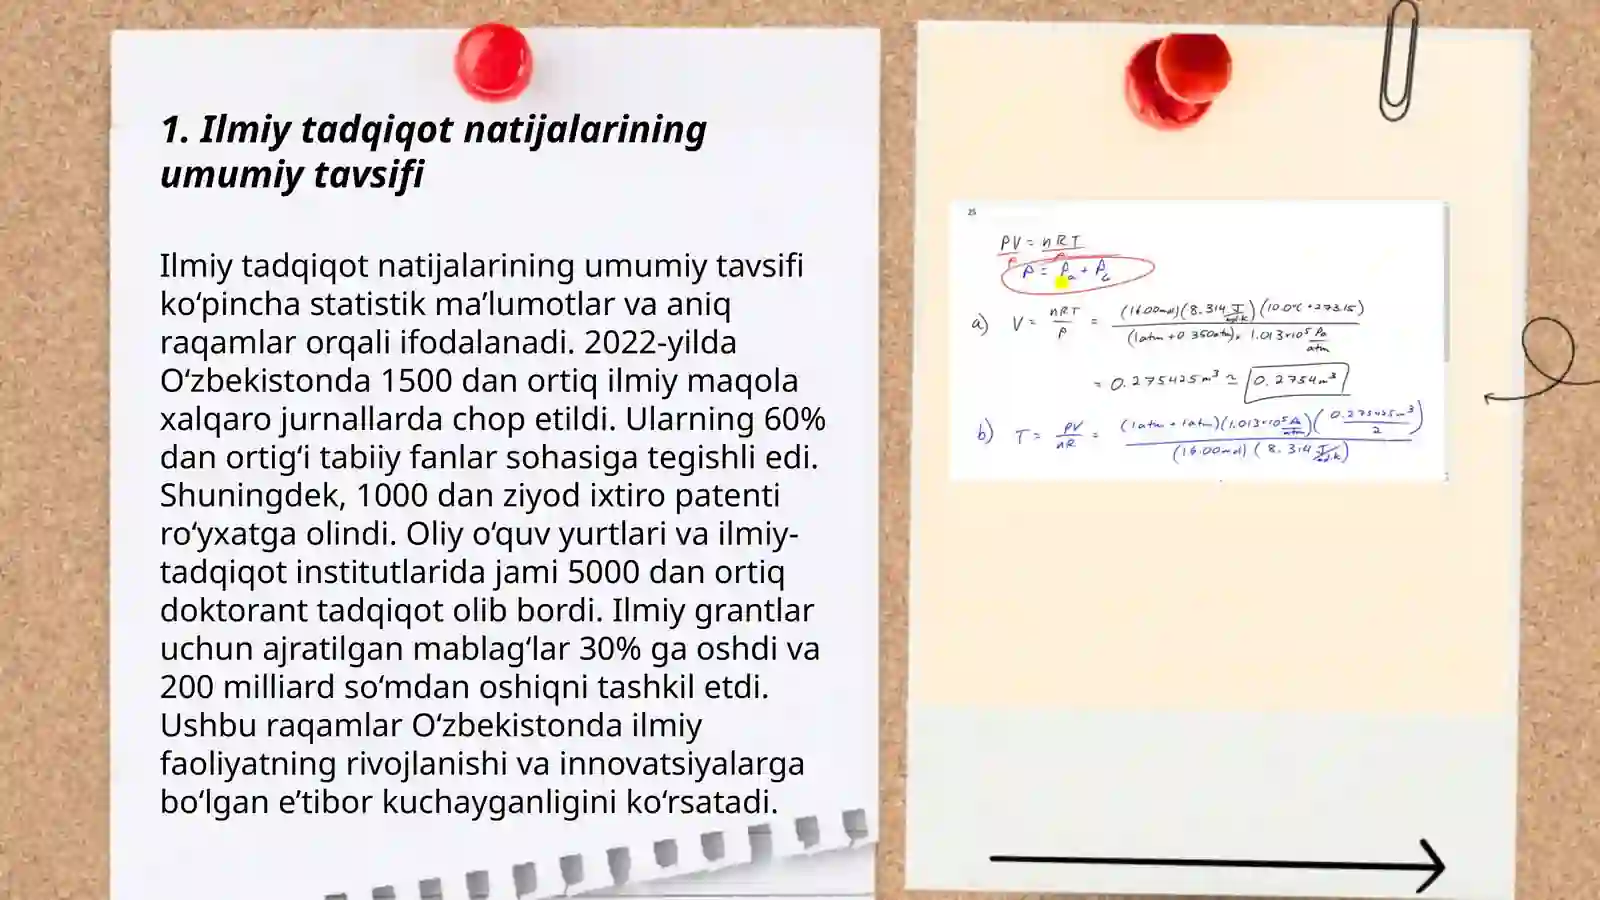 1. Ilmiy tadqiqot natijalarining
umumiy tavsifi
Ilmiy tadqiqot natijalarining umumiy tavsifi
ko‘pincha statistik ma’lumotlar va aniq
raqamlar orqali ifodalanadi. 2022-yilda
O‘zbekistonda 1500 dan ortiq ilmiy maqola
xalqaro jurnallarda chop etildi. Ularning 60%
dan ortig‘i tabiiy fanlar sohasiga tegishli edi.
Shuningdek, 1000 dan ziyod ixtiro patenti
ro‘yxatga olindi. Oliy o‘quv yurtlari va ilmiy-
tadqiqot institutlarida jami 5000 dan ortiq
doktorant tadqiqot olib bordi. Ilmiy grantlar
uchun ajratilgan mablag‘lar 30% ga oshdi va
200 milliard so‘mdan oshiqni tashkil etdi.
Ushbu raqamlar O‘zbekistonda ilmiy
faoliyatning rivojlanishi va innovatsiyalarga
bo‘lgan e’tibor kuchayganligini ko‘rsatadi.
25
PV = nRT
P P
P = Pa + PG
a) V = nRT / P = (16.00mol)(8.314 J/mol.K)(10.0°C + 273.15) / (1atm + 0.350atm) × 1.013×10⁵ Pa/atm
= 0.275425m³ ≃ 0.2754m³
b) T = PV / nR = (1atm + 1atm)(1.013×10⁵ Pa/atm)(0.275425m³ / 2) / (16.00mol)(8.314 J/mol.K)